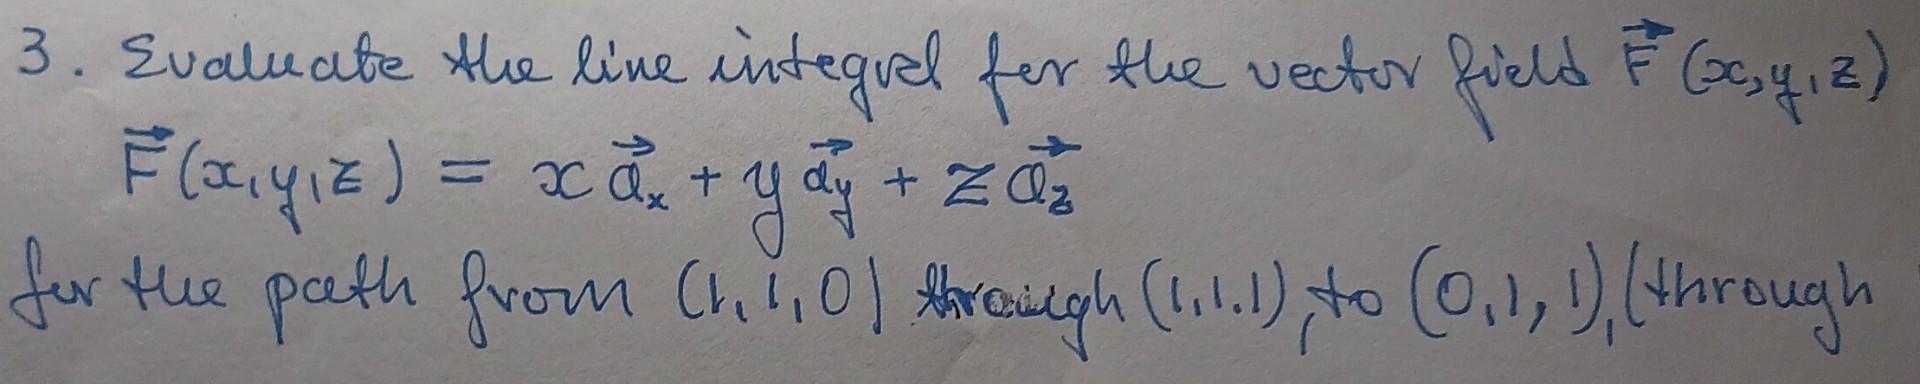 3. Evaluate the line integral for the vector field F⃗ (x,y,z)
F⃗(x,y,z) = x a⃗ₓ + y a⃗y + z a⃗z
for the path from (1,1,0) through (1,1.1), to (0,1,1), (through